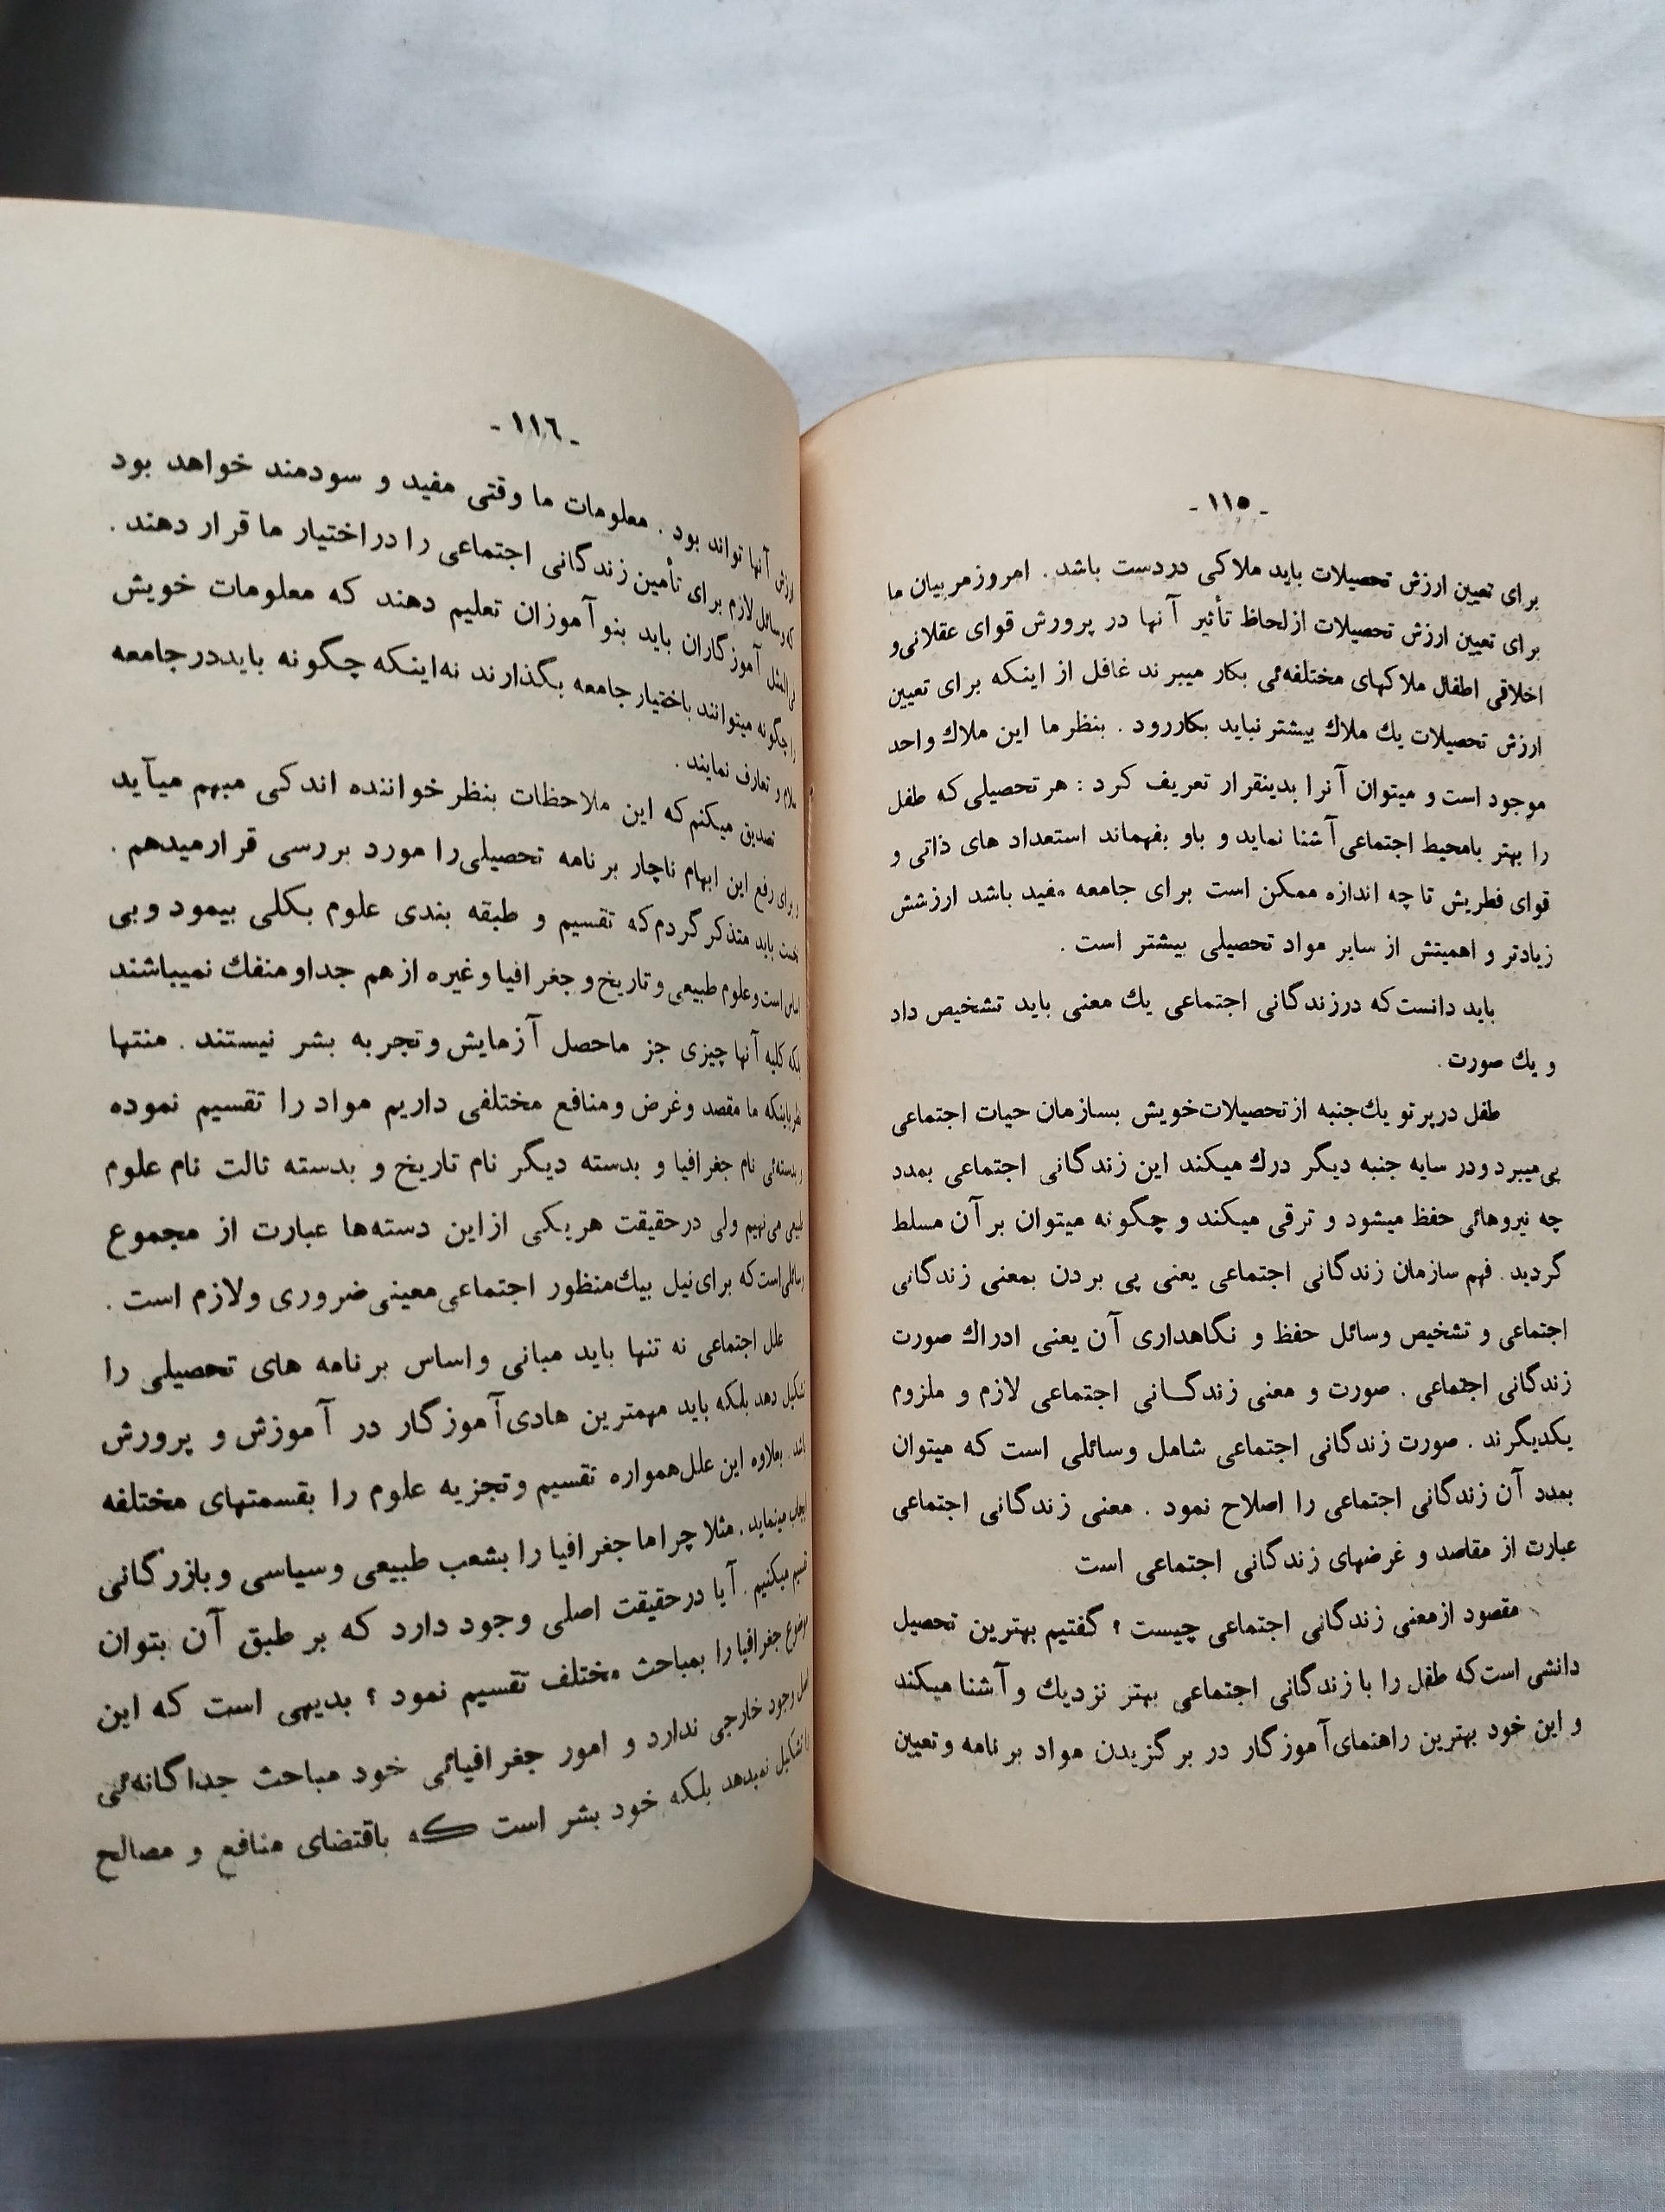 - ۱۱۵ -
برای تعیین ارزش تحصیلات باید ملاکی دردست باشد . امروزمربیان ما
برای تعیین ارزش تحصیلات ازلحاظ تأثیر آنها در پرورش قوای عقلانی‌و
اخلاقی اطفال ملاکهای مختلفه‌ئی بکار میبرند غافل از اینکه برای تعیین
ارزش تحصیلات یك ملاك بیشتر نباید بکاررود . بنظرما این ملاك واحد
موجود است و میتوان آنرا بدینقرار تعریف کرد : هر تحصیلی‌که طفل
را بهتر بامحیط اجتماعی آشنا نماید و باو بفهماند استعداد های ذاتی و
قوای فطریش تا چه اندازه ممکن است برای جامعه مفید باشد ارزشش
زیادتر و اهمیتش از سایر مواد تحصیلی بیشتر است .
باید دانست‌که درزندگانی اجتماعی یك معنی باید تشخیص داد
و یك صورت .
طفل درپرتو یك‌جنبه ازتحصیلات‌خویش بسازمان حیات اجتماعی
پی‌میبرد ودر سایه جنبه دیگر درك میکند این زندگانی اجتماعی بمدد
چه نیروهائی حفظ میشود و ترقی میکند و چگونه میتوان بر آن مسلط
گردید . فهم سازمان زندگانی اجتماعی یعنی پی بردن بمعنی زندگانی
اجتماعی و تشخیص وسائل حفظ و نگاهداری آن یعنی ادراك صورت
زندگانی اجتماعی . صورت و معنی زندگانی اجتماعی لازم و ملزوم
یکدیگرند . صورت زندگانی اجتماعی شامل وسائلی است که میتوان
بمدد آن زندگانی اجتماعی را اصلاح نمود . معنی زندگانی اجتماعی
عبارت از مقاصد و غرضهای زندگانی اجتماعی است
مقصود ازمعنی زندگانی اجتماعی چیست ؟ گفتیم بهترین تحصیل
دانشی است‌که طفل را با زندگانی اجتماعی بهتر نزدیك و آشنا میکند
و این خود بهترین راهنمای آموزگار در برگزیدن مواد برنامه و تعیین
- ۱۱٦ -
ارزش آنها تواند بود . معلومات ما وقتی مفید و سودمند خواهد بود
که وسائل لازم برای تأمین زندگانی اجتماعی را دراختیار ما قرار دهند .
فی المثل آموزگاران باید بنو آموزان تعلیم دهند که معلومات خویش
را چگونه میتوانند باختیار جامعه بگذارند نه‌اینکه چگونه بایددرجامعه
سلام و تعارف نمایند .
تصدیق میکنم‌که این ملاحظات بنظر خواننده اندکی مبهم میآید
و برای رفع این ابهام ناچار برنامه تحصیلی‌را مورد بررسی قرارمیدهم .
نخست باید متذکر گردم‌که تقسیم و طبقه بندی علوم بکلی بیمود وبی
اساس است وعلوم طبیعی و تاریخ و جغرافیا و غیره ازهم جداو منفك نمیباشند
بلکه کلیه آنها چیزی جز ماحصل آزمایش و تجربه بشر نیستند . منتها
نظر باینکه ما مقصد وغرض ومنافع مختلفی داریم مواد را تقسیم نموده
و بدسته‌ئی نام جغرافیا و بدسته دیگر نام تاریخ و بدسته ثالث نام علوم
طبیعی می‌نهیم ولی درحقیقت هریکی ازاین دسته‌ها عبارت از مجموع
وسائلی‌است‌که برای نیل بیك‌منظور اجتماعی‌معینی‌ضروری ولازم است .
علل اجتماعی نه تنها باید مبانی واساس برنامه های تحصیلی را
تشکیل دهد بلکه باید مهمترین هادی‌آموزگار در آموزش و پرورش
باشد . بعلاوه این علل‌همواره تقسیم وتجزیه علوم را بقسمتهای مختلفه
ایجاب مینماید . مثلا چراما جغرافیا را بشعب طبیعی وسیاسی وبازرگانی
تقسیم میکنیم . آیا درحقیقت اصلی وجود دارد که بر طبق آن بتوان
موضوع جغرافیا را بمباحث مختلف تقسیم نمود ؟ بدیهی است که این
اصل وجود خارجی ندارد و امور جغرافیائی خود مباحث جداگانه‌ئی
را تشکیل نمیدهد بلکه خود بشر است که باقتضای منافع و مصالح